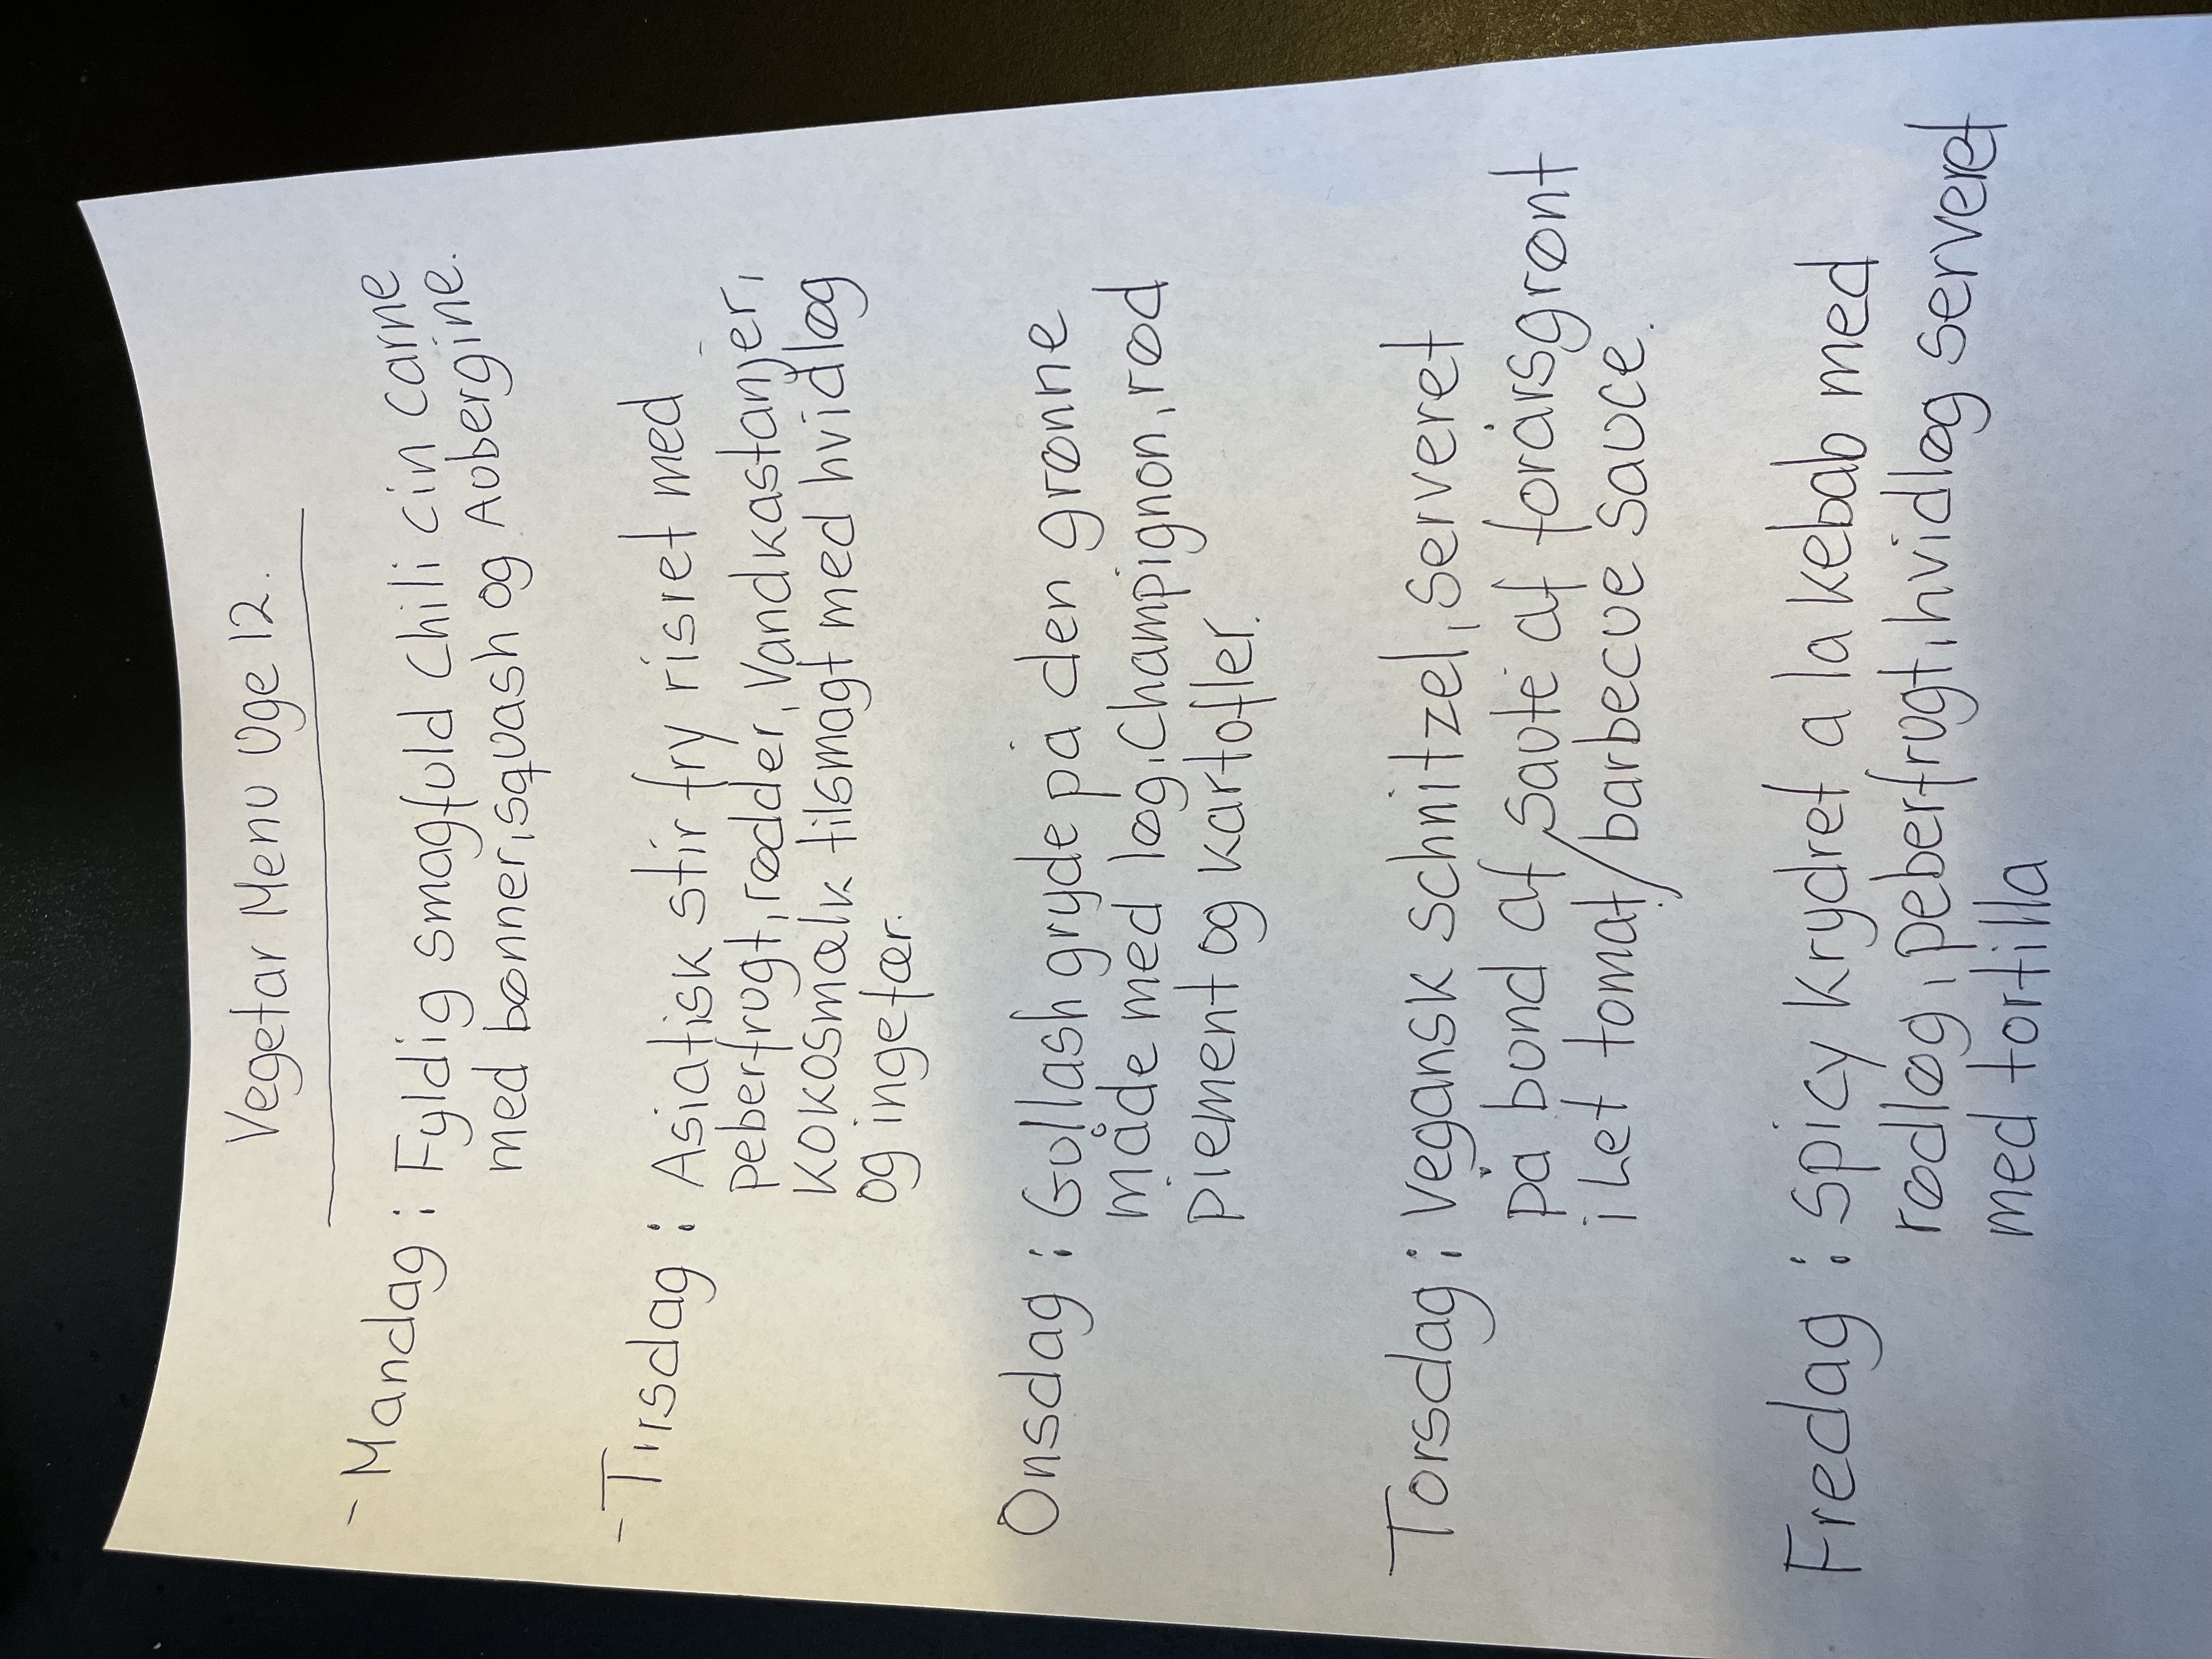 Vegetar Menu Uge 12.
- Mandag : Fyldig smagfuld chili cin carne
med bønner, squash og Aubergine.
- Tirsdag : Asiatisk stir fry risret med
peberfrugt, rødder, Vandkastanjer,
Kokosmælk tilsmagt med hvidløg
og ingefær.
Onsdag : Gullash gryde på den grønne
måde med løg, champignon, rød
piement og kartofler.
Torsdag : Vegansk schnitzel, serveret
på bund af, sauté af forårsgrønt
i Let tomat/barbecue sauce.
Fredag : Spicy krydret a la kebab med
rødløg, peberfrugt, hvidløg serveret
med tortilla